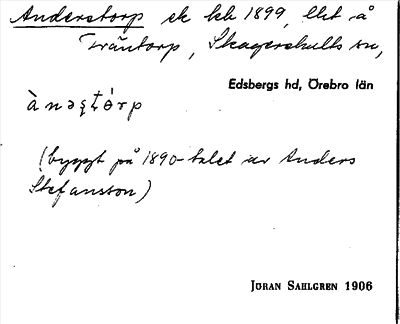 Anderstorp ek kh 1899, lht å
Träntorp, Skagershults sn,
Edsbergs hd, Örebro län
(byggt på 1890-talet av Anders
Stefansson)
JÖRAN SAHLGREN 1906